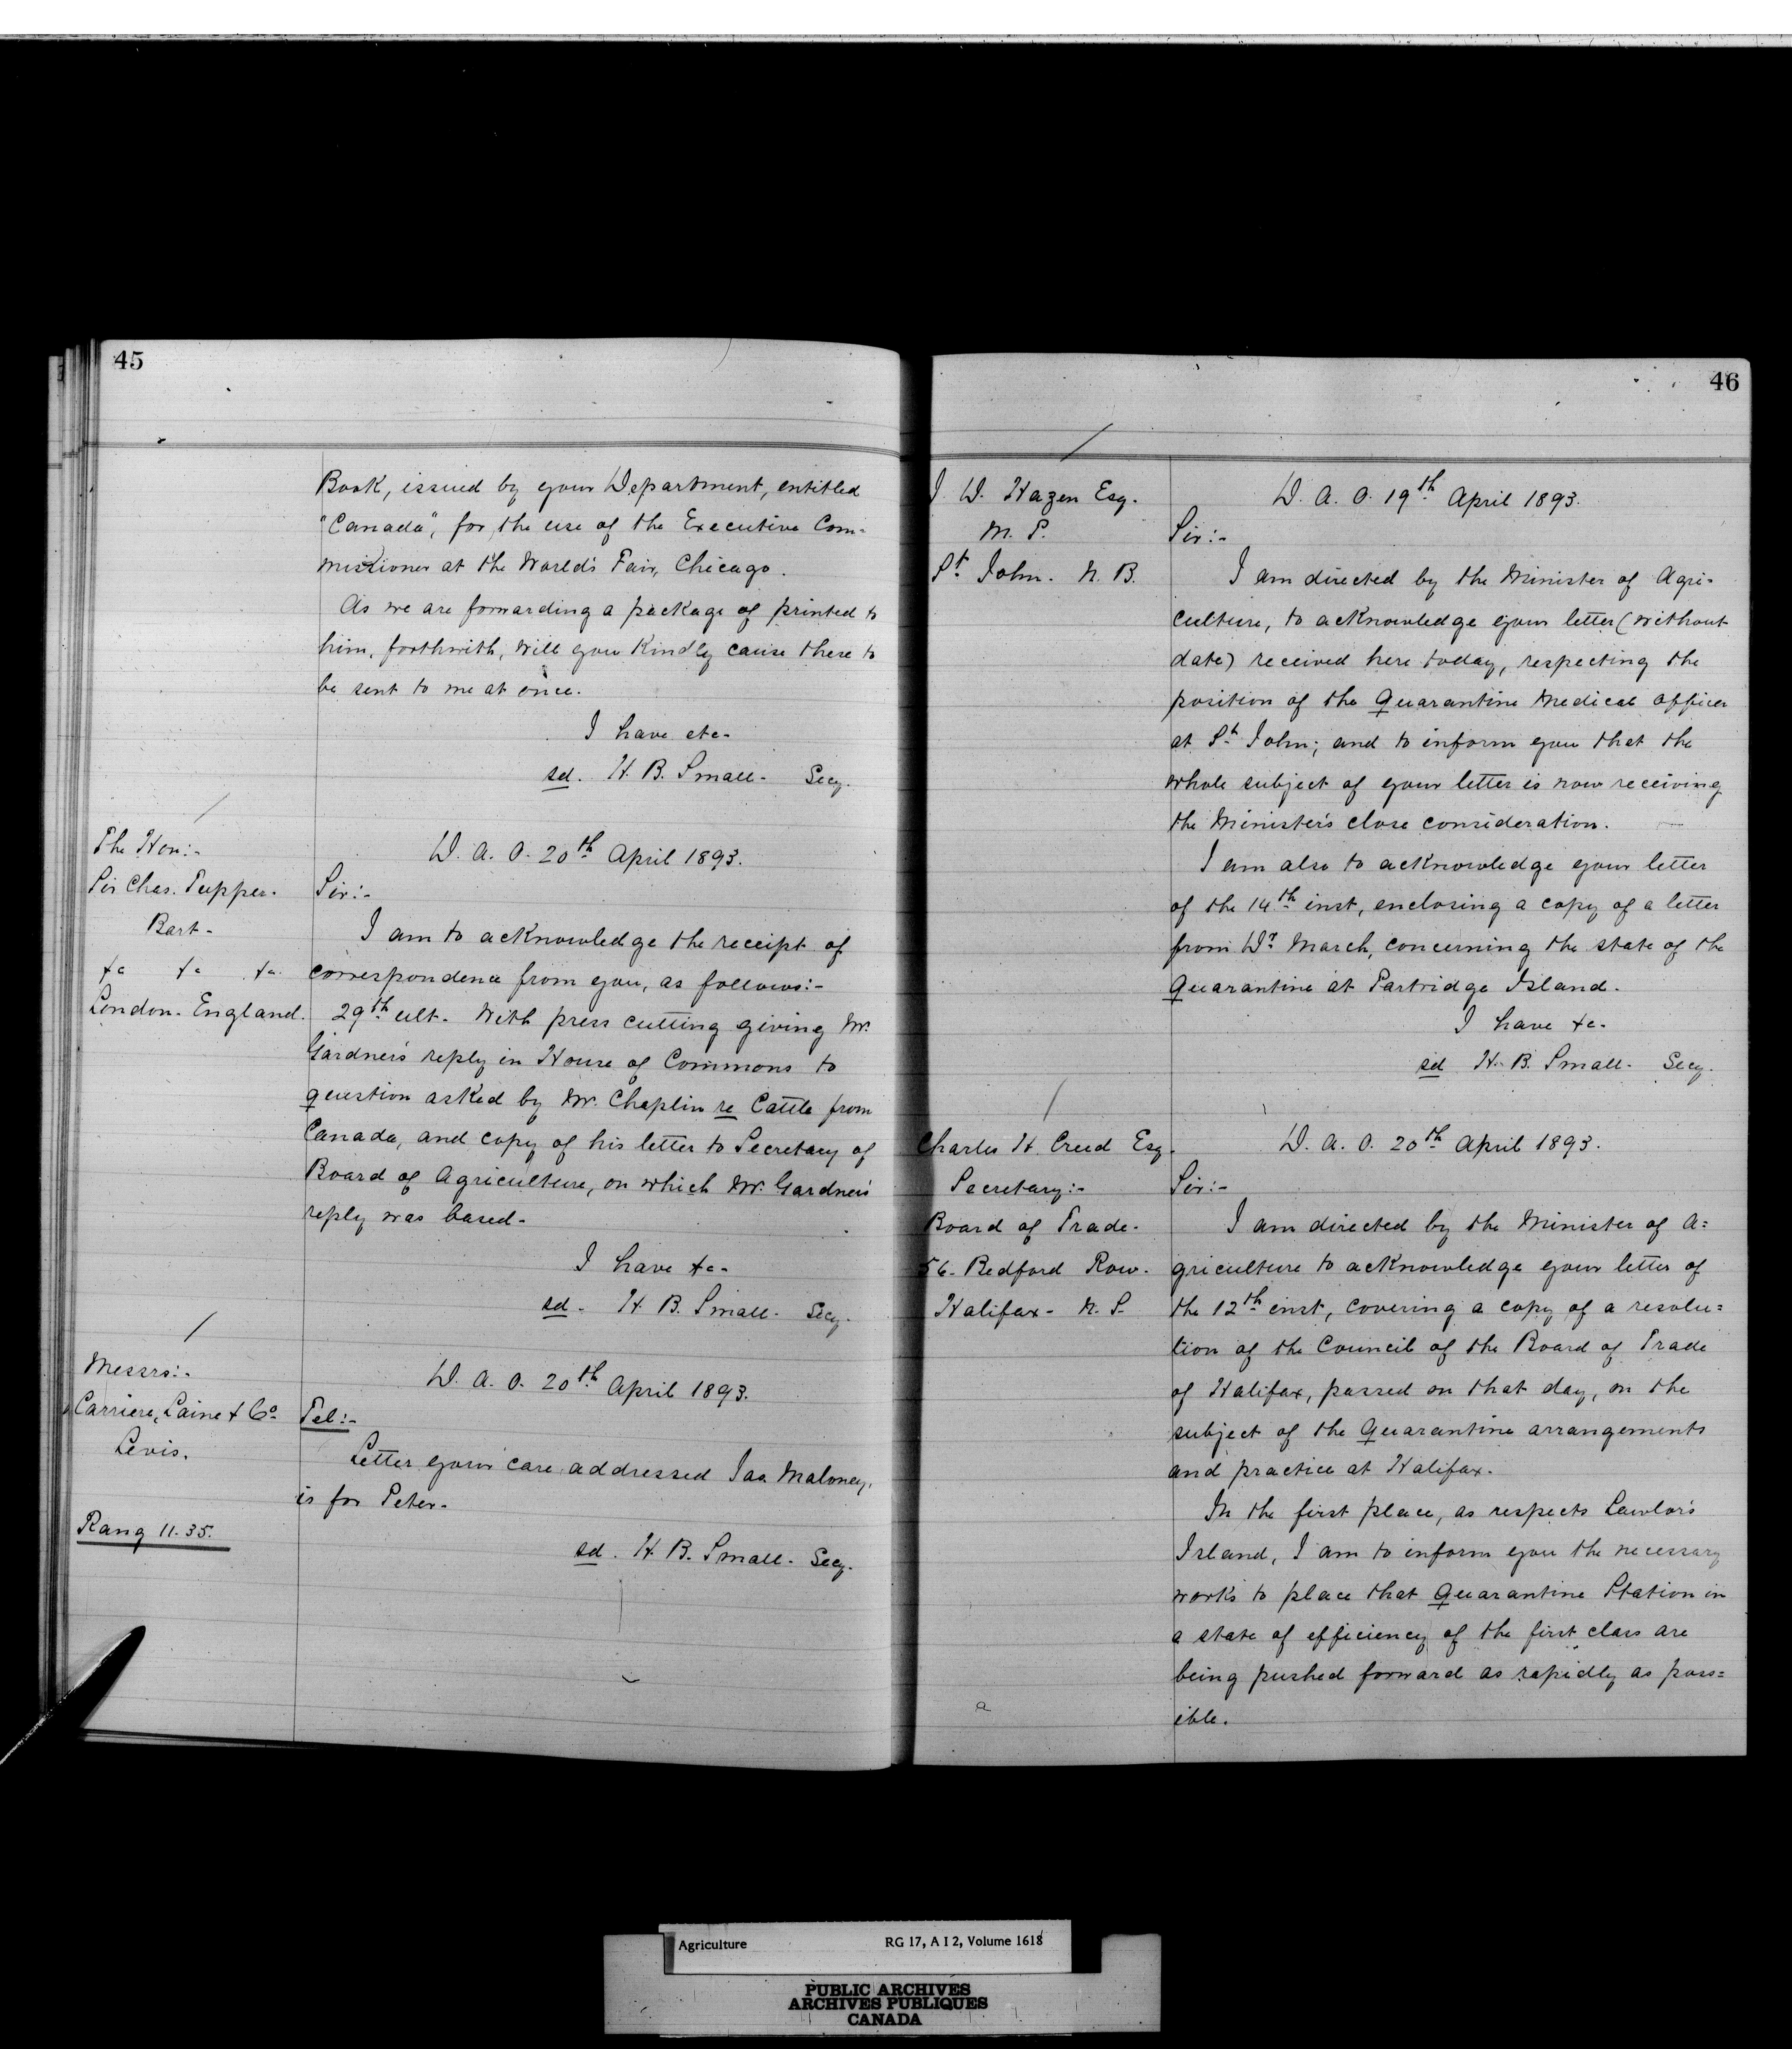 45
Book, issued by your Department, entitled
"Canada", for the use of the Executive Com-
missioner at the World's Fair, Chicago.
As we are forwarding a package of printed to
him, forthwith, will you Kindly cause these to
be sent to me at once.
I have etc-
sd. H. B. Small- Secy.
The Hon:-
Sir Chas. Tupper.
Bart-
&c &c &c
London. England.
D. A. O. 20th April 1893.
Sir:-
I am to acknowledge the receipt of
correspondence from you, as follows:-
29th ult. With press cutting giving Mr.
Gardner's reply in House of Commons to
question asked by Mr. Chaplin re Cattle from
Canada, and copy of his letter to Secretary of
Board of Agriculture, on which Mr. Gardner's
reply was based-
I have &c-
sd- H. B. Small- Secy.
Messrs:-
Carriere, Laine & Co
Levis.
Rang 11.35.
D. A. O. 20th April 1893.
Tel:-
Letter your care addressed Jas Maloney,
is for Peter-
sd. H. B. Small- Secy.
46
J. D. Hazen Esq.
M. P.
St John. N. B.
D. A. O. 19th April 1893.
Sir:-
I am directed by the Minister of Agri-
culture, to acknowledge your letter (without
date) received here today, respecting the
position of the Quarantine Medical Officer
at St John; and to inform you that the
whole subject of your letter is now receiving
the Minister's close consideration.
I am also to acknowledge your letter
of the 14th inst, enclosing a copy of a letter
from Dr March, concerning the state of the
Quarantine at Partridge Island.
I have &c-
sd H. B. Small- Secy.
Charles H. Creed Esq.
Secretary:-
Board of Trade-
56- Bedford Row-
Halifax- N. S.
D. A. O. 20th April 1893.
Sir:-
I am directed by the Minister of A=
griculture to acknowledge your letter of
the 12th inst, covering a copy of a resolu=
tion of the Council of the Board of Trade
of Halifax, passed on that day, on the
subject of the Quarantine arrangements
and practice at Halifax.
In the first place, as respects Lawlor's
Island, I am to inform you the necessary
works to place that Quarantine Station in
a state of efficiency of the first class are
being pushed forward as rapidly as poss=
ible.
a
Agriculture RG 17, A I 2, Volume 1618
PUBLIC ARCHIVES
ARCHIVES PUBLIQUES
CANADA